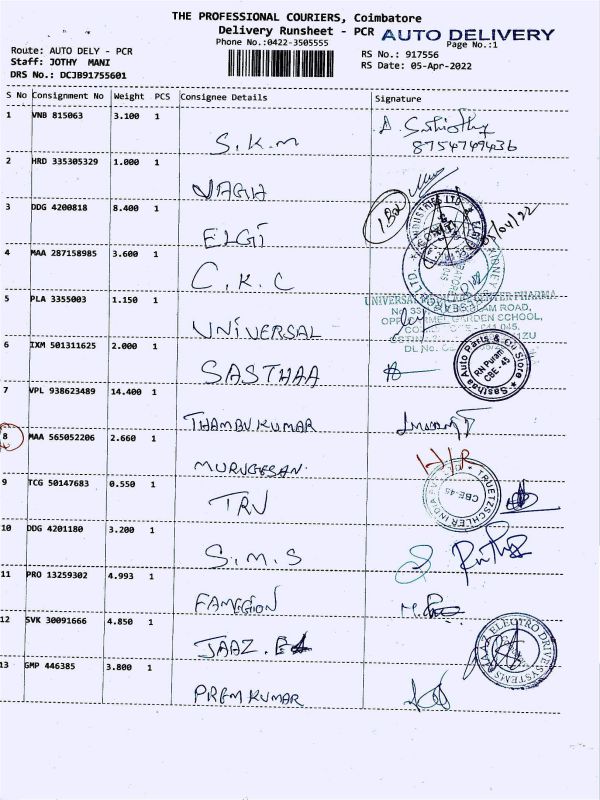 THE PROFESSIONAL COURIERS, Coimbatore
Delivery Runsheet - PCR AUTO DELIVERY
Phone No.:0422-3505555
Page No.:1
Route: AUTO DELY - PCR
RS No.: 917556
Staff: JOTHY MANI
RS Date: 05-Apr-2022
DRS No.: DCJB91755601
S No Consignment No Weight PCS Consignee Details Signature
1 VNB 815063 3.100 1
S.K.M
8754749436
2 HRD 335305329 1.000 1
NAGA
3 DDG 4200818 8.400 1
ELGI
4 MAA 287158985 3.600 1
C.K.C
5 PLA 3355003 1.150 1
UNIVERSAL
6 IXM 501311625 2.000 1
SASTHAA
Sasthaa Auto Parts & Co Store
RN Puram
CBE - 45
7 VPL 938623489 14.400 1
THAMBU KUMAR
8 MAA 565052206 2.660 1
MURUGESAN
H/R
9 TCG 50147683 0.550 1
TRV
TRUETZSCHLER INDIA
CBE-45
10 DDG 4201180 3.200 1
S.M.S
11 PRO 13259302 4.993 1
12 SVK 30091666 4.850 1
JAAZ.
JAAZ ELECTRO DRIVE SYSTEMS
13 GMP 446385 3.800 1
PREM KUMAR